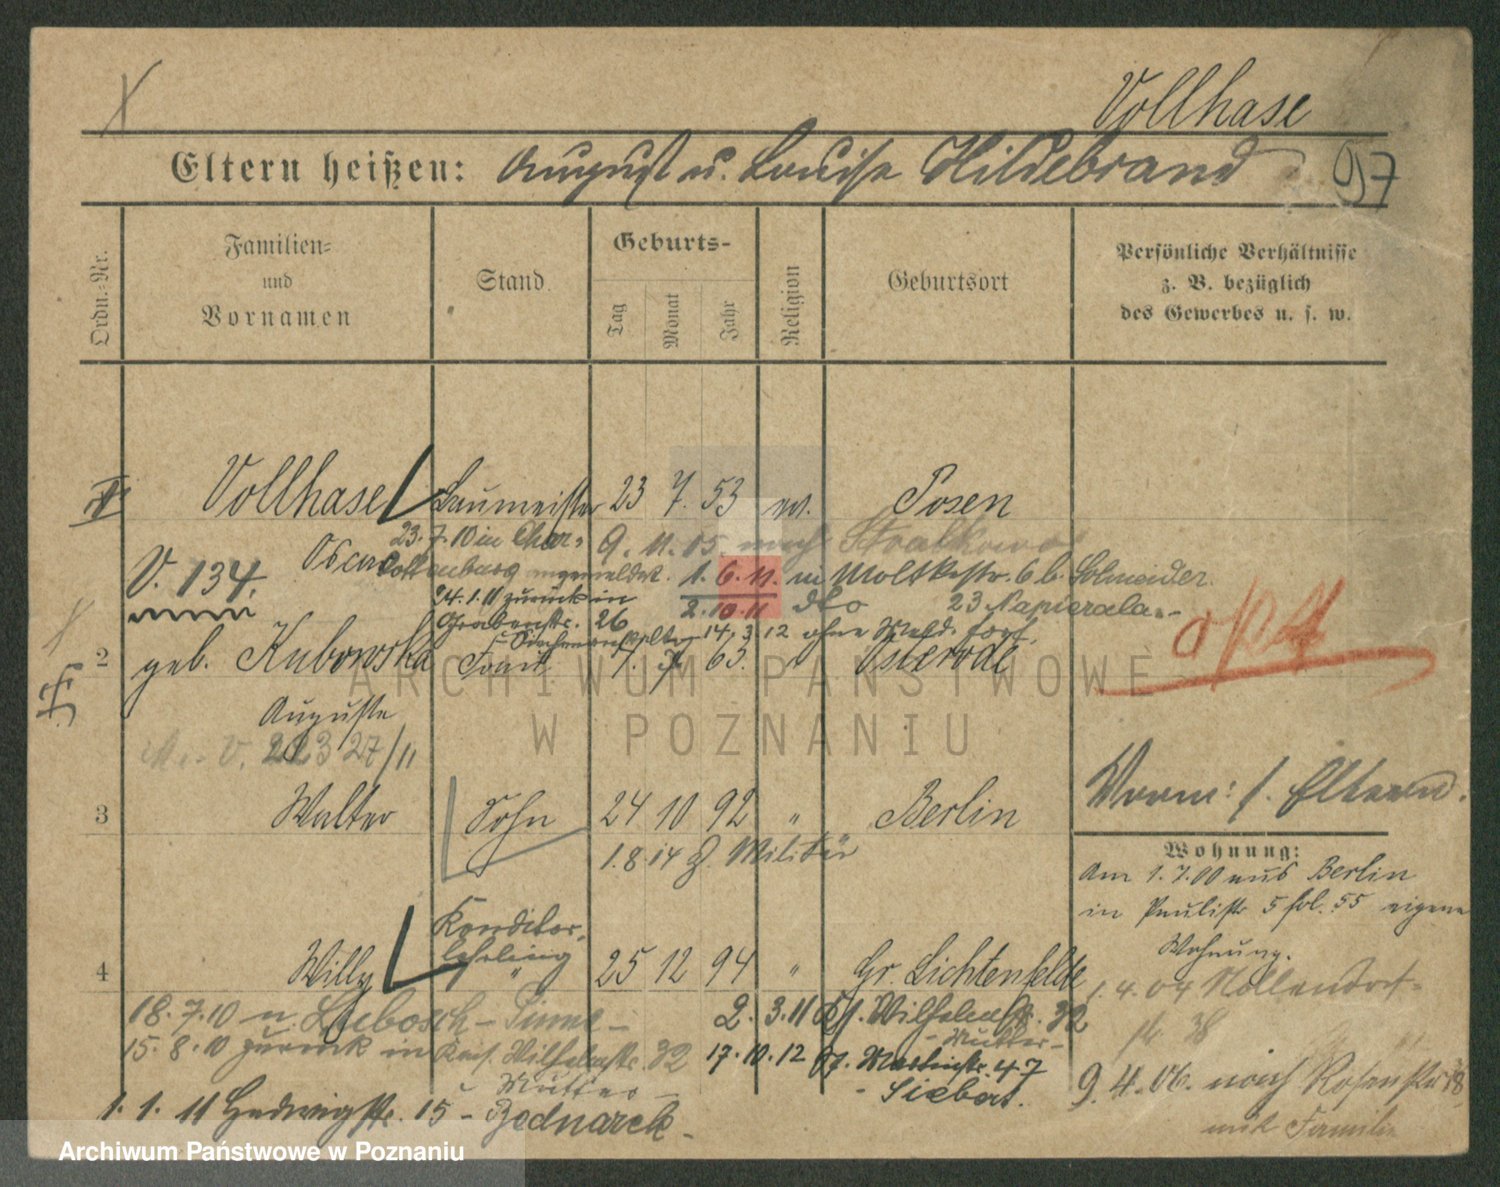 Vollhase
Eltern heißen: August u. Louise Hildebrand 97
Ordn.-Nr.
Familien-
und
Vornamen
Stand
Geburts-
Tag
Monat
Jahr
Religion
Geburtsort
Persönliche Verhältnisse
z. B. bezüglich
des Gewerbes u. s. w.
Vollhase Baumeister 23 7. 53 ev. Posen
Oscar
23. 7. 10 in Char-
lottenburg angemeldet.
24. 1. 11 zurück in
Grabenstr. 26
9. 11. 05. nach Stralkowo
1. 6. 11. in Moltkestr. 6 b. Schneider.
2. 10. 11 dto 23 Papierala.-
14. 3. 12 ohne Meld. fort.
V. 134.
2 geb. Kubowska Frau 1. 7. 63. " Osterode
Auguste
V. 22327/11
3 Walter Sohn 24 10 92 " Berlin
1. 8. 14 z. Militär
Vorm: s. Eltern.
Wohnung:
Am 1. 7. 00 aus Berlin
in Paulistr 5 fol. 55 eigene
Wohnung.
4 Willy Konditor-
lehrling
" 25 12 94 " Gr. Lichtenfelde
1. 4. 04 Nollendorf-
str. 38
9. 4. 06. nach Rosenstr 18
mit Familie
18. 7. 10 n
15. 8. 10 zurück in Kais. Wilhelmstr. 32
- Mutter -
1. 1. 11 Hedwigstr. 15 - Bednarek -
2. 3. 11 Wilhelmstr. 32
- Mutter -
17. 10. 12 Martinstr. 47
- Siebert.
ARCHIWUM PAŃSTWOWE
W POZNANIU
Archiwum Państwowe w Poznaniu